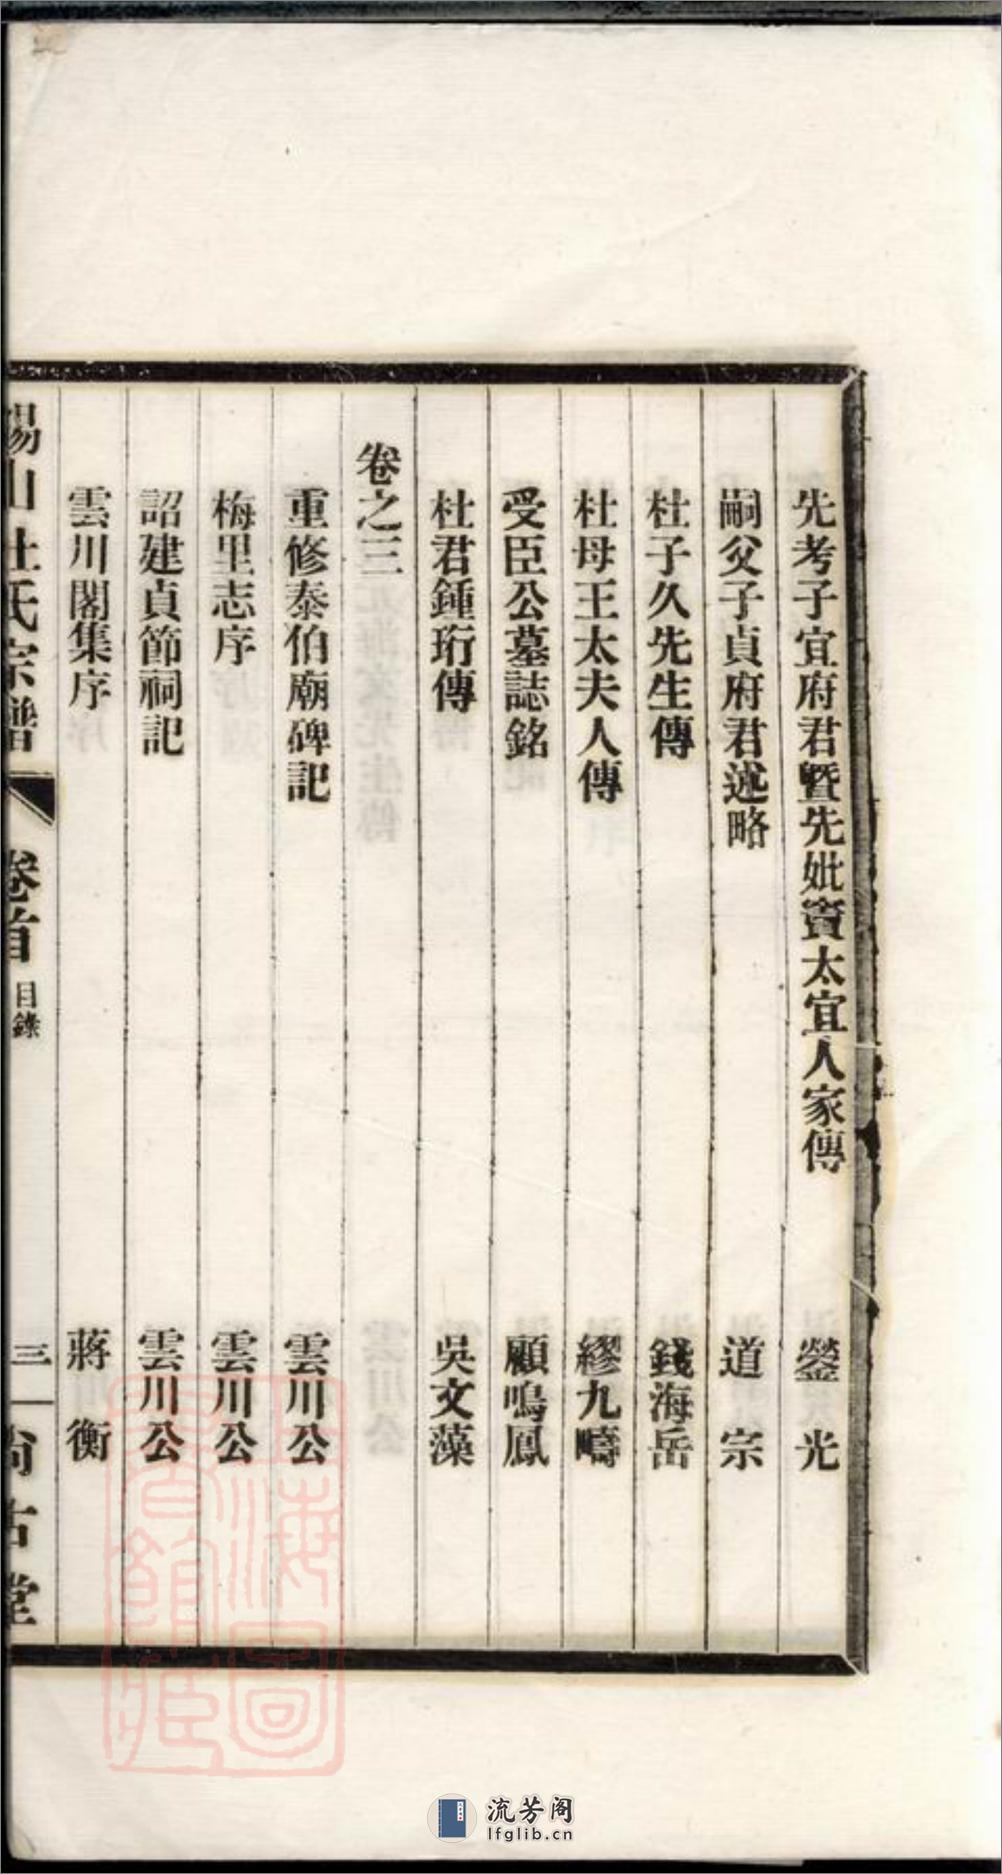 先考子宜府君暨先妣竇太宜人家傳 鎣光
嗣父子貞府君述略 道宗
杜子久先生傳 錢海岳
杜母王太夫人傳 繆九疇
受臣公墓誌銘 顧鳴鳳
杜君鍾珩傳 吳文藻
卷之三
重修泰伯廟碑記 雲川公
梅里志序 雲川公
詔建貞節祠記 雲川公
雲川閣集序 蔣衡
錫山杜氏宗譜 卷首 目錄 三 尚古堂
上海圖書館藏
流芳阁
lfglib.cn